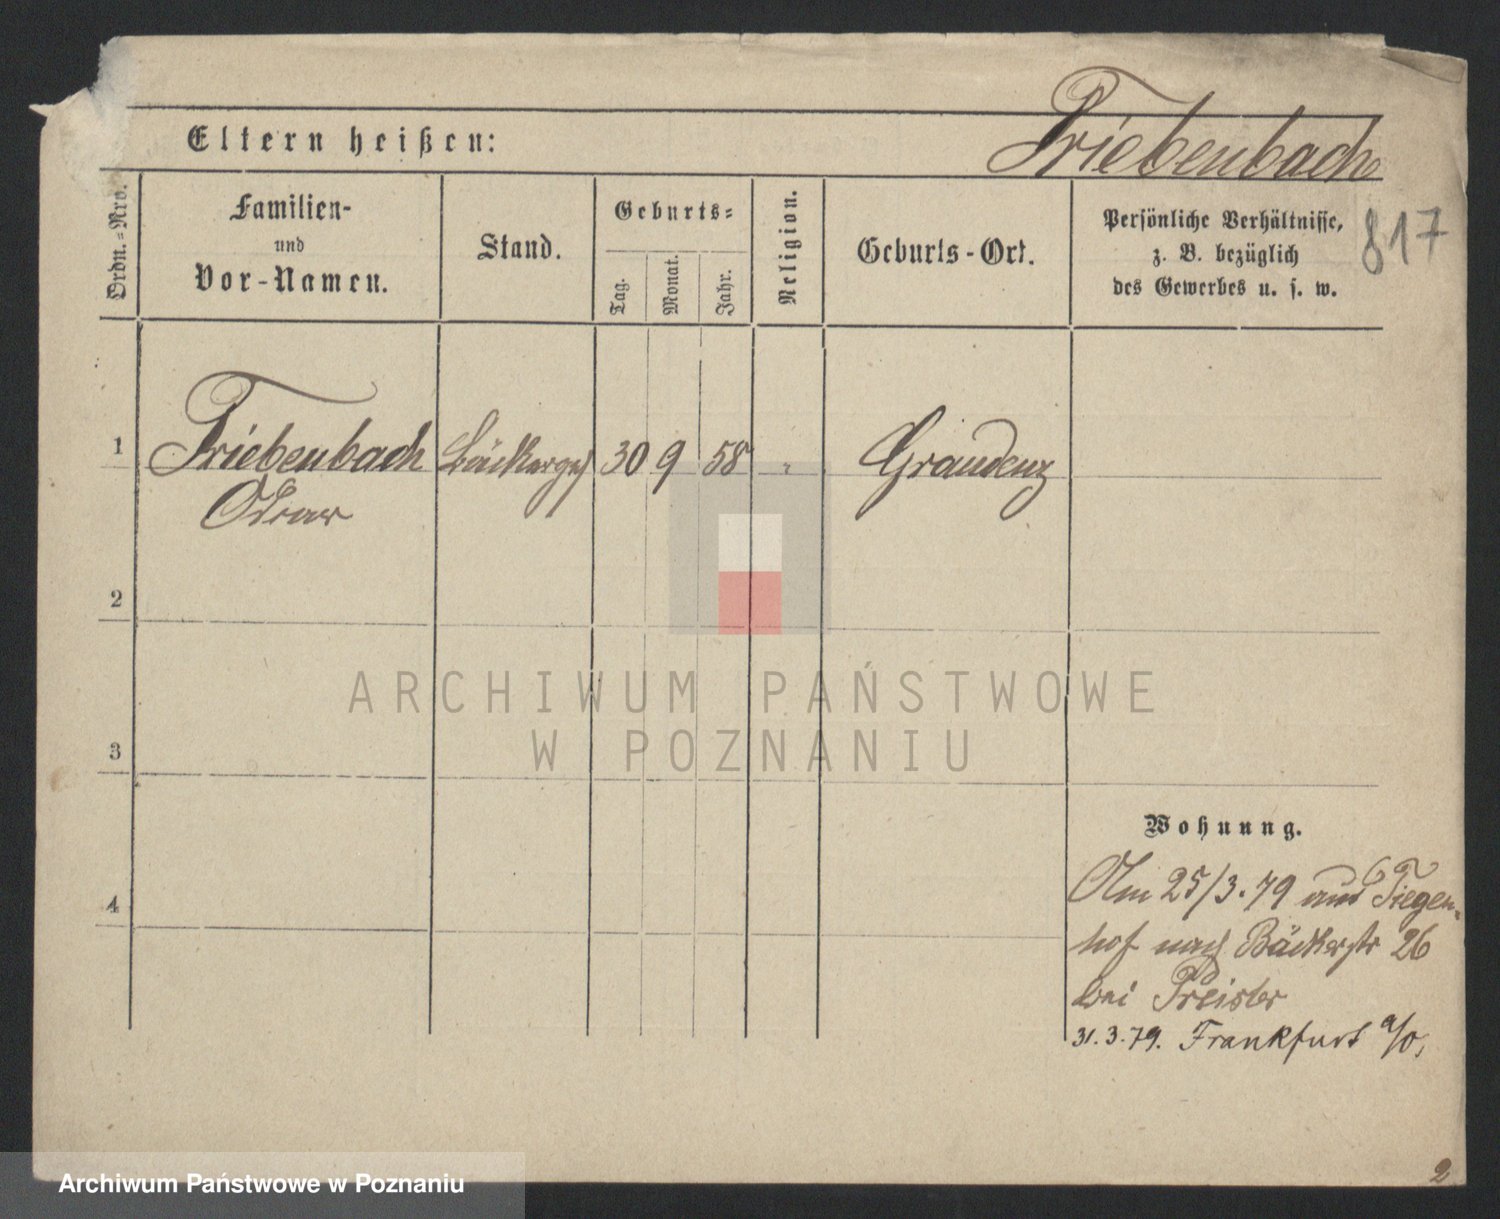 Triebenbach
Eltern heißen:
Ordn.-Nro.
Familien-
und
Vor-Namen.
Stand.
Geburts-
Tag.
Monat.
Jahr.
Religion.
Geburts-Ort.
Persönliche Verhältnisse,
z. B. bezüglich
des Gewerbes u. s. w.
817
1 Triebenbach Bäckerges 30 9 58 Graudenz
2
3
4
ARCHIWUM PAŃSTWOWE
W POZNANIU
Wohnung.
Am 25/3.79 aus Tiegen-
hof nach Bäckerstr 26
bei Preister
31.3.79. Frankfurt a/O,
2
Archiwum Państwowe w Poznaniu